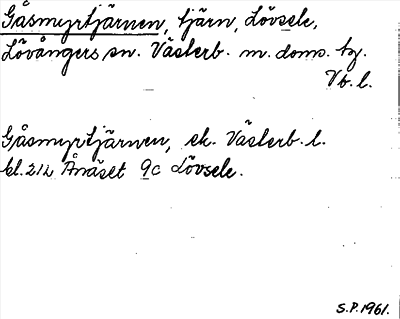 Gåsmyrtjärnen, tjärn, Lövsele,
Lövångers sn. Västerb. m. doms. tg.
Vb. l.
Gåsmyrtjärnen, ek. Västerb. l.
bl. 212 Ånäset 9c Lövsele.
S.P. 1961.